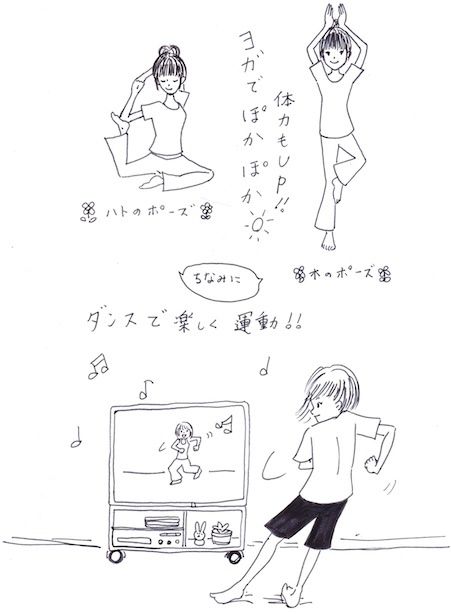 ヨガでぽかぽか
体力もUP!!
ハトのポーズ
木のポーズ
ちなみに
ダンスで楽しく運動!!